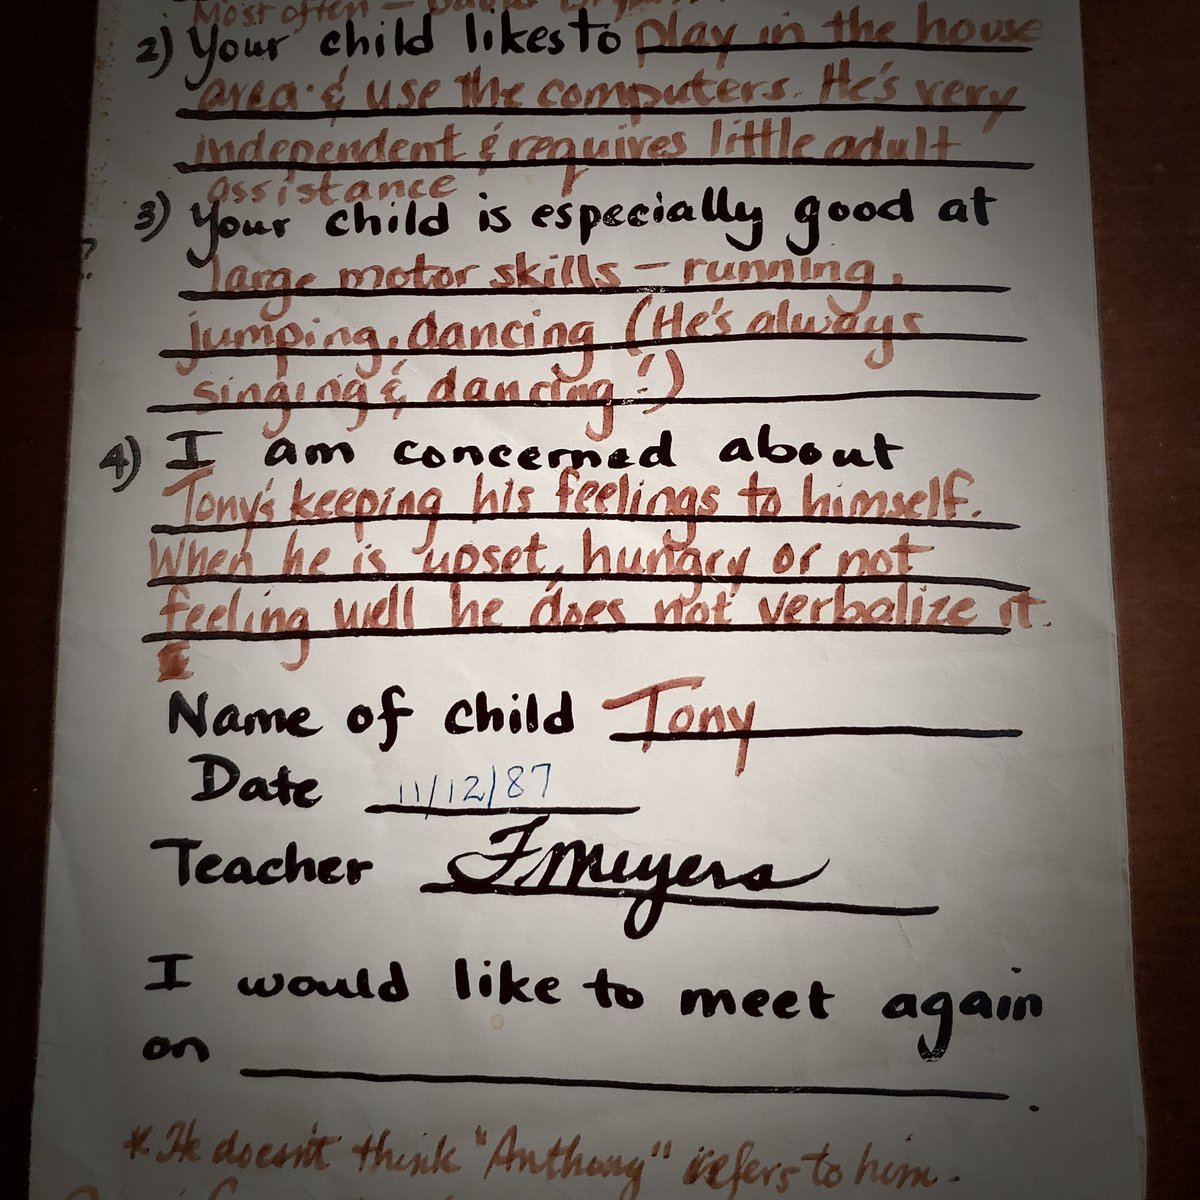 Most often – David
2) Your child likes to play in the house
area & use the computers. He's very
independent & requires little adult
assistance
3) Your child is especially good at
large motor skills – running,
jumping, dancing (He's always
singing & dancing!)
4) I am concerned about
Tony's keeping his feelings to himself.
When he is upset, hungry or not
feeling well he does not verbalize it.
Name of child Tony
Date 11/12/87
Teacher F Meyers
I would like to meet again
on .
* He doesn't think "Anthony" refers to him.